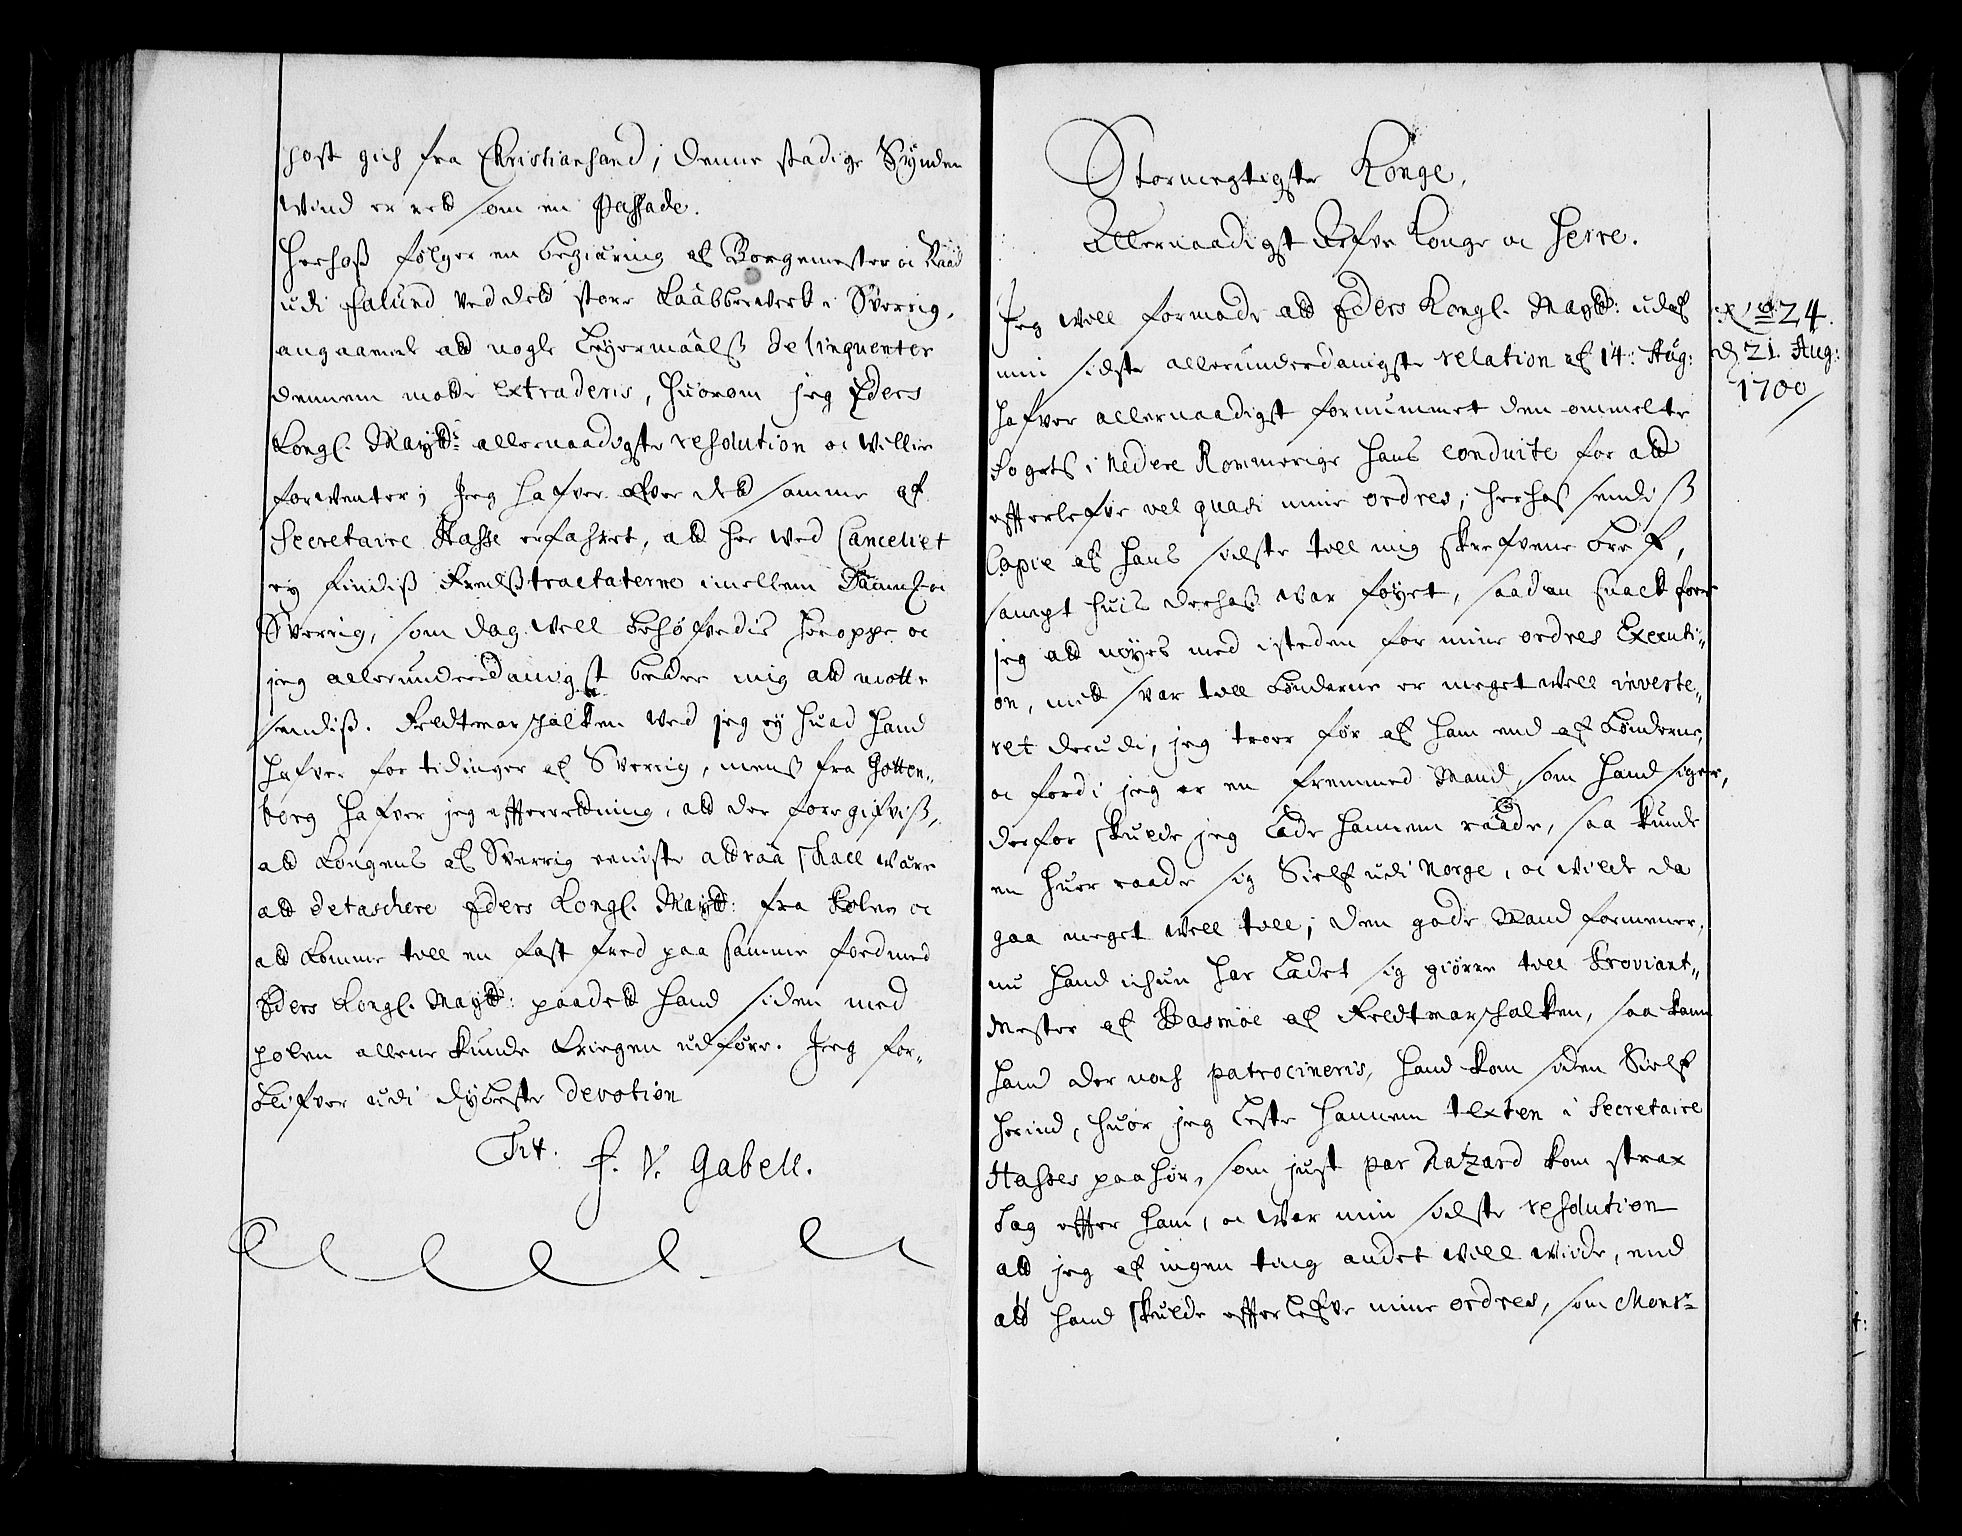 post gich fra Christiansand; denne stadige Synden
Wind er ret som en Passade.
Herhoß følger en begiæring af Borgemester oc Raad
udi Falund ved det store Kaabberverk i Sverrig,
angaaende att nogle Leyermaalß delinquenter
dennem motte extraderis, huorom jeg Eders
Kongl. Maytt: allernaadigste resolution oc Willie
forwenter; Jeg hafver ofver dett samme af
Secretaire Hasse erfahret, att her wed Cancelict
ey findiß Fredß tractaterne imellem Danm: oc
Sverrig, som dog well behøfvedis heroppe oc
jeg allerunderdanigst beder mig att motte
sendiß. Feldtmarschalken wed jeg ey huad hand
hafver for tidinger af Sverrig, menß fra Gotten„
berg hafver jeg efterretning, att der foregifviß,
att Kongens af Sverrig eeniste attraa schall være
att detaschere Eders Kongl. Maytt: fra Polen oc
att komme till en fast fred paa samme fod med
Eders Kongl. Maytt: paadett hand siden med
Polen allene kunde Kriegen udføre. Jeg for„
blifver udi dybeste devotion
Tit. F. V. Gabell.
Stormegtigste Konge,
Allernaadigst Arfve Konge oc Herre.
No 24.
d. 21. Aug:
1700
Jeg well formode att Eders Kongl. Maytt: udaf
min sidste allerunderdanigste relation af 14: Aug:
hafver allernaadigst fornummet den ommelte
Fogets i Nedere Rommerige hans conduite for att
efterlefve vel quasi mine ordres; herhoß sendiß
Copie af hans sidste till mig skrefvene bref,
sampt huis derhoß war føyet, saadan snack faar
jeg att nøyes med isteden for mine ordres Executi„
on, mit svar till bønderne er meget well inverte„
ret derudi, jeg troer før af ham end af bønderne,
oc fordi jeg er en fremmed Mand, som hand siger,
derfor skulde jeg lade hannem raade, saa kunde
en huer raade sig Sielf udi Norge, oc wilde da
gaa meget well till; den gode Mand formener,
nu hand ichun har ladet sig giøre till Proviant„
Mester af Basmoe af Feldtmarschalken, saa kand
hand der noch patrocineris, hand kom siden Sielf
herind, huor jeg læste hannem texten i Secretaire
Hasses paahør, som just par hazard kom strax
Dag efter ham, oc war min sidste resolution
att jeg af ingen ting andet will wide, end
att hand skulde efterlefve mine ordres, som Monsr